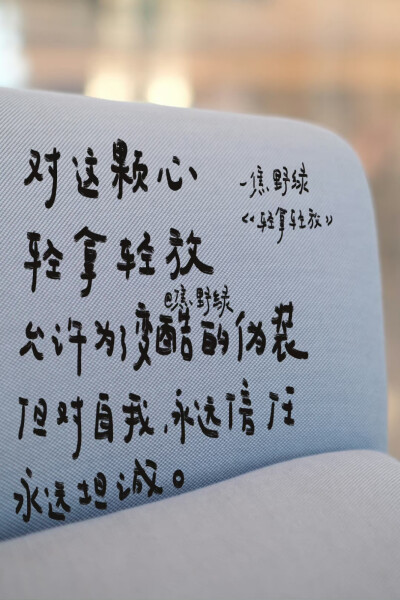 对这颗心
轻拿轻放
-焦野绿
《轻拿轻放》
@焦野绿
允许为了变酷的伪装
但对自我，永远信任
永远坦诚。